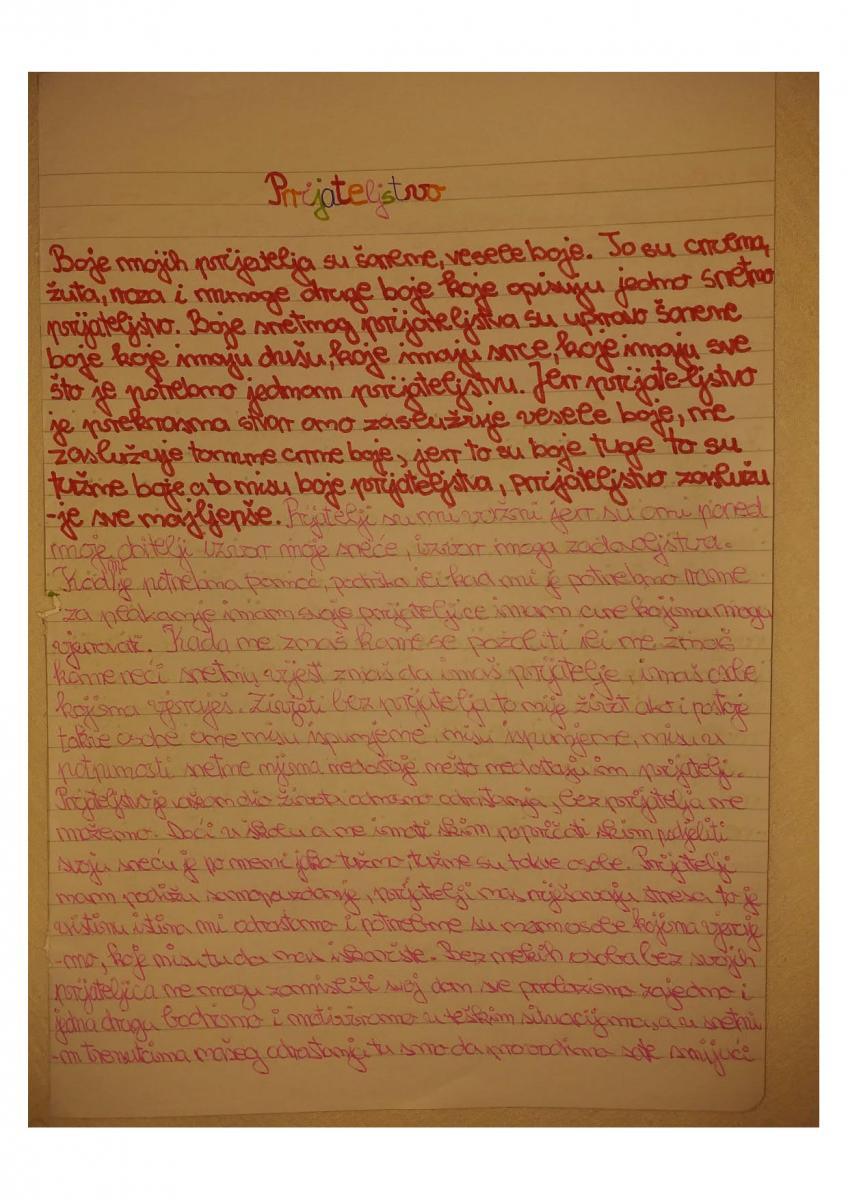 Prijateljstvo
Boje mojih prijatelja su šarene, vesele boje. To su crvena,
žuta, roza i mnoge druge boje koje opisuju jedno sretno
prijateljstvo. Boje sretnog prijateljstva su upravo šarene
boje koje imaju dušu, koje imaju srce, koje imaju sve
što je potrebno jednom prijateljstvu. Jer prijateljstvo
je prekrasna stvar ono zaslužuje vesele boje, ne
zaslužuje tamne crne boje, jer to su boje tuge to su
tužne boje a to nisu boje prijateljstva, prijateljstvo zaslužu
-je sve najljepše. Prijatelji su mi važni jer su oni pored
moje obitelji izvor moje sreće, izvor moga zadovoljstva.
Kad mi je potrebna pomoć, podrška ili kad mi je potrebno rame
za plakanje imam svoje prijateljice imam cure kojima mogu
vjerovat. Kada ne znaš kome se požaliti ili ne znaš
kome reći sretnu vijest znaš da imaš prijatelje, imaš osobe
kojima vjeruješ. Živjeti bez prijatelja to nije život ako i postoje
takve osobe one nisu ispunjene, nisu ispunjene, nisu u
potpunosti sretne njima nedostaje nešto nedostaju im prijatelji.
Prijateljstvo je važan dio života odnosno odrastanja, bez prijatelja ne
možemo. Doći u školu a ne imati s kim popričati s kim podjeliti
svoju sreću je po meni jako tužno tužne su takve osobe. Prijatelji
nam podižu samopouzdanje, prijatelji nas rješavaju stresa to je
uistinu istina mi odrastamo i potrebne su nam osobe kojima vjeruje
-mo, koje nisu tu da nas iskoriste. Bez nekih osoba bez svojih
prijateljica ne mogu zamisliti svoj dan sve prolazimo zajedno i
jedna drugu bodrimo i motiviramo u teškim situacijama, a u sretni
-m trenutcima našeg odrastanja tu smo da provodimo sate smijući